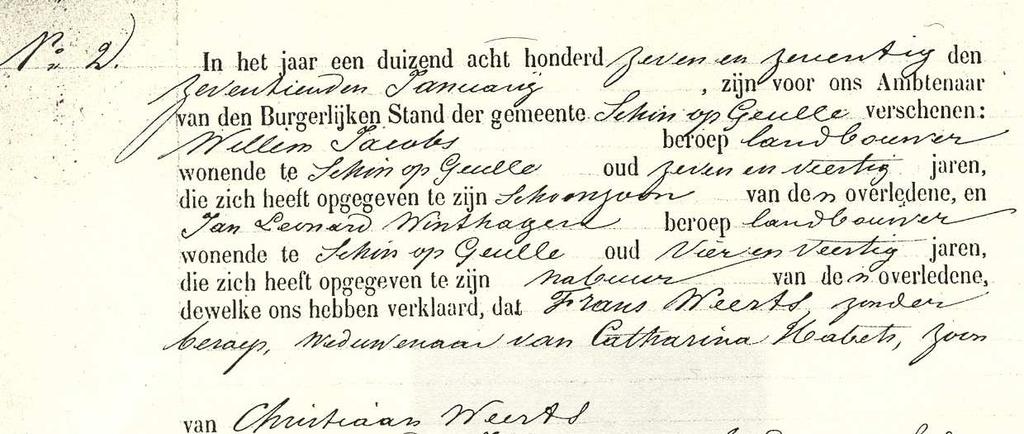 No 2. In het jaar een duizend acht honderd zeven en zeventig den
zeventienden Januarij , zijn voor ons Ambtenaar
van den Burgerlijken Stand der gemeente Schin op Geulle verschenen:
Willem Jacobs beroep landbouwer
wonende te Schin op Geulle oud zeven en veertig jaren,
die zich heeft opgegeven te zijn schoonzoon van den overledene, en
Jan Leonard Winthagen beroep landbouwer
wonende te Schin op Geulle oud vier en veertig jaren,
die zich heeft opgegeven te zijn nabuur van den overledene,
dewelke ons hebben verklaard, dat Frans Weerts, zonder
beroep, weduwenaar van Catharina Habets, zoon
van Christiaan Weerts